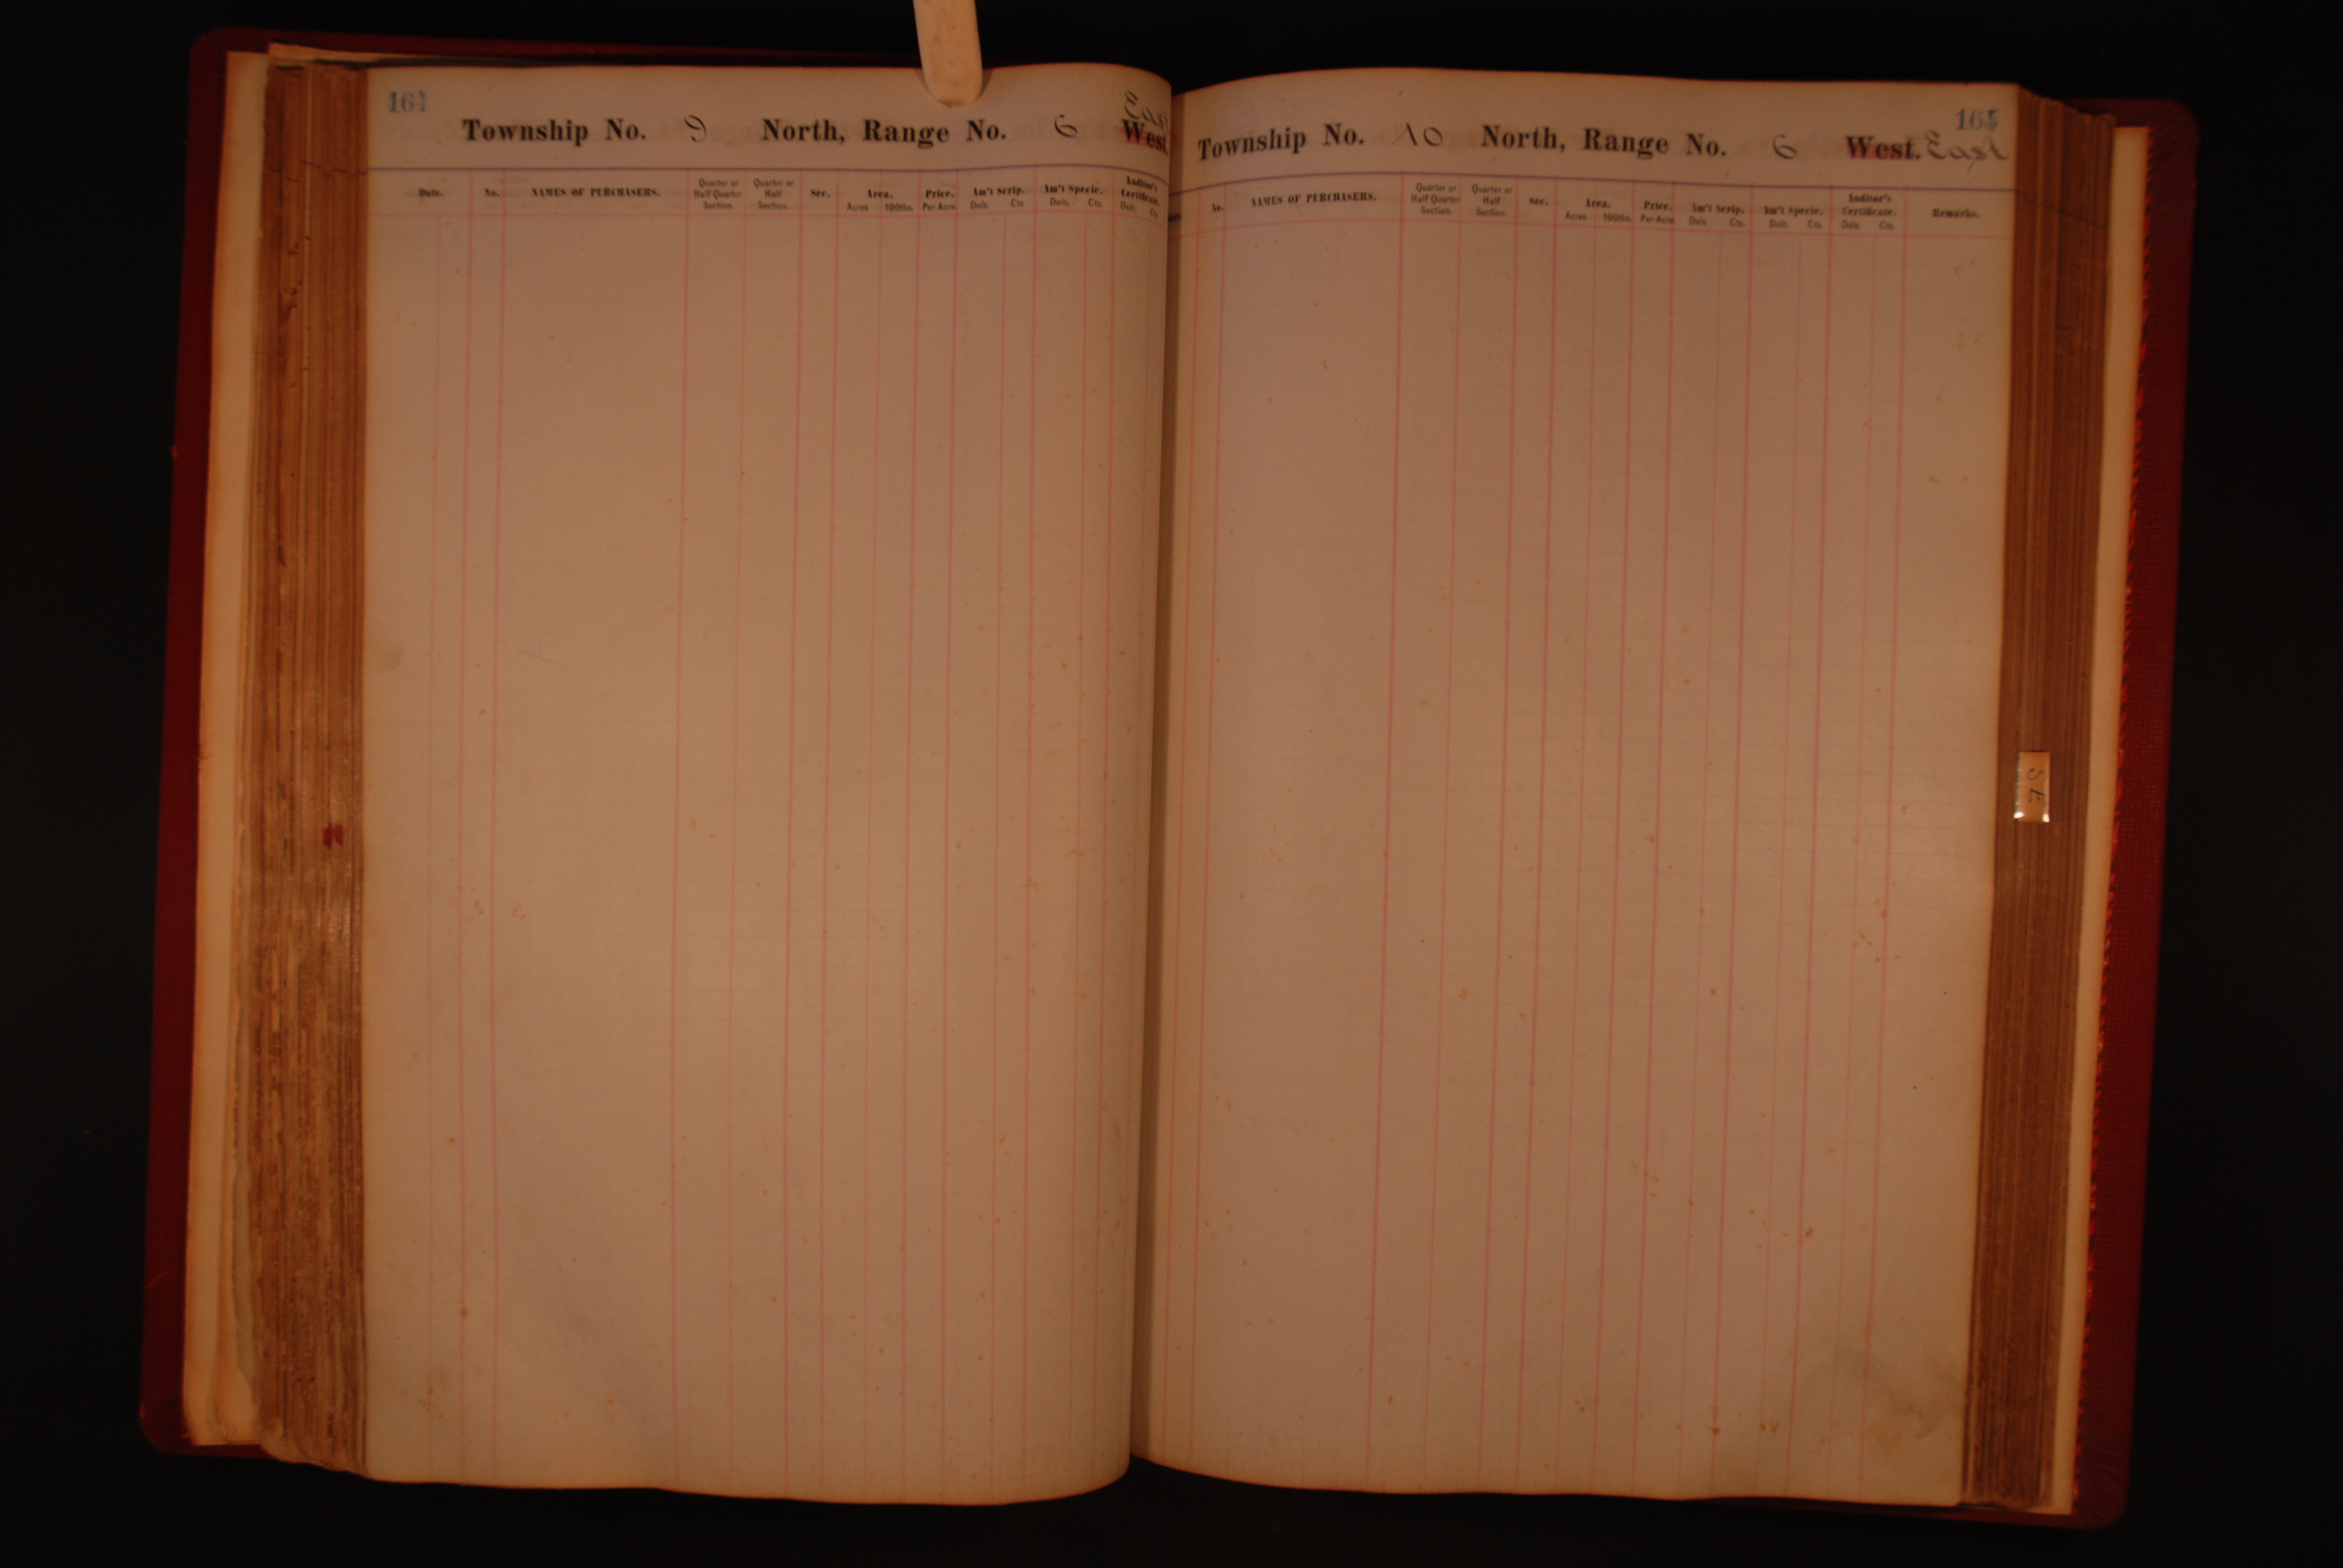 164
East
Township No. 9 North, Range No. 6 West
Date. No. NAMES OF PURCHASERS. Quarter or Half Quarter Section. Quarter or Half Section. Sec. Area. Acres 100ths. Price. Per Acre. Am't Scrip. Dols. Cts. Am't Specie. Dols. Cts. Auditor's Certificate. Dols. Cts.
165
Township No. 10 North, Range No. 6 West. East
No. NAMES OF PURCHASERS. Quarter or Half Quarter Section. Quarter or Half Section. Sec. Area. Acres 100ths. Price. Per Acre. Am't Scrip. Dols. Cts. Am't Specie. Dols. Cts. Auditor's Certificate. Dols. Cts. Remarks.
SE